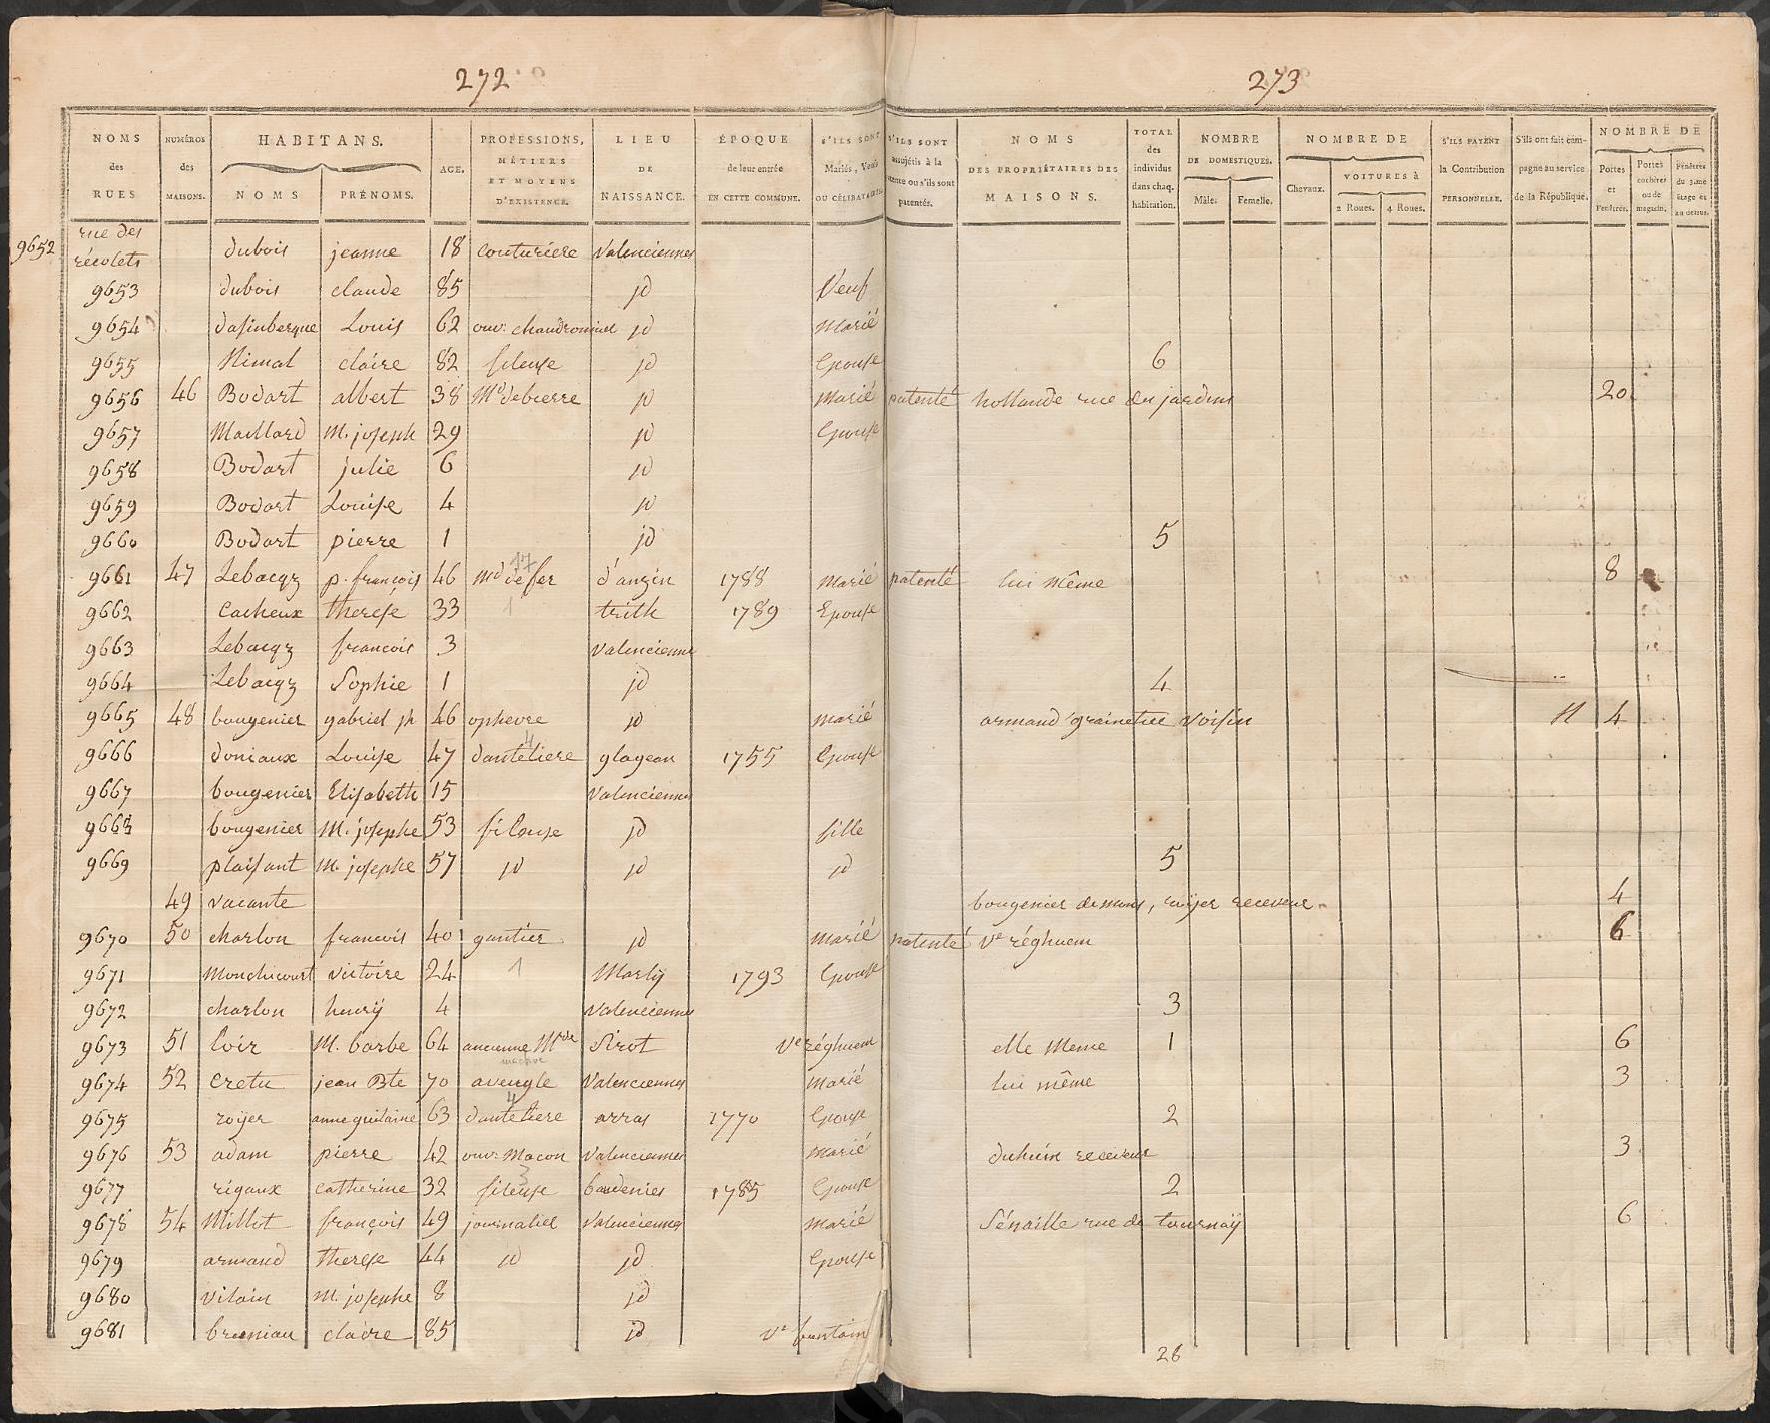 272
273
NOMS des RUES | NUMÉROS des MAISONS. | HABITANS. NOMS | PRÉNOMS. | AGE. | PROFESSIONS, MÉTIERS ET MOYENS D'EXISTENCE. | LIEU DE NAISSANCE. | ÉPOQUE de leur entrée EN CETTE COMMUNE. | S'ILS SONT Mariés, Veufs OU CÉLIBATAIRES | S'ILS SONT assujétis à la patente ou s'ils sont patentés. | NOMS DES PROPRIÉTAIRES DES MAISONS. | TOTAL des individus dans chaq. habitation. | NOMBRE DE DOMESTIQUES. Mâle. | Femelle. | NOMBRE DE Chevaux. | VOITURES à 2 Roues. | 4 Roues. | S'ILS PAYENT la Contribution PERSONNELLE. | S'ils ont fait campagne au service de la République. | NOMBRE DE Portes et Fenêtres. | Portes cochères ou de magasin. | Fenêtres du 3.me étage et au dessus.
rue des récolets
9652 dubois jeanne 18 couturiere Valenciennes
9653 dubois claude 85 id Veuf
9654 dasinbergue Louis 62 ouv: chaudronnier id Marié
9655 Nimal claire 82 fileuse id Epouse 6
9656 46 Bodart albert 38 Md debierre id Marié patenté hollande rue des jardins 20
9657 Maillard M. joseph 29 id Epouse
9658 Bodart julie 6 id
9659 Bodart Louise 4 id
9660 Bodart pierre 1 id 5
9661 47 Lebacqz p. françois 46 Md de fer 17 d'anzin 1788 Marié patenté lui même 8
9662 Cacheux therese 33 1 trith 1789 Epouse
9663 Lebacqz françois 3 Valenciennes
9664 Lebacqz Sophie 1 id 4
9665 48 bougenier gabriel jh 46 ophevre id marié armand grainetier voisin N 4
9666 doniaux Louise 47 danteliere 4 glageon 1755 Epouse
9667 bougenier Elisabeth 15 Valenciennes
9668 bougenier M. josephe 53 fileuse id fille
9669 plaisant M. josephe 57 id id id 5
49 vacante bougenier demons, royer receveur 4
9670 50 charlon francois 40 gantier id Marié patenté Ve réghuem 6
9671 Monchicourt victoire 24 1 Marly 1793 Epouse
9672 charlon henry 4 Valenciennes 3
9673 51 Loir M. barbe 64 ancienne Mde Sirot Ve réghuem elle meme 1 6
9674 52 Cretu jean Bte 70 aveugle Valenciennes Marié lui même 3
9675 royer anne guilaine 63 danteliere 4 arras 1770 Epouse 2
9676 53 adam pierre 42 ouv: Macon Valenciennes Marié duhuin receveur 3
9677 rigaux catherine 32 fileuse 3 baudenies 1785 Epouse 2
9678 54 Millot françois 49 journalier Valenciennes Marié Sénaille rue de tournay 6
9679 armand therese 44 id id Epouse
9680 vilain M. josephe 8 id
9681 bruniau claire 85 id Ve fontain
28